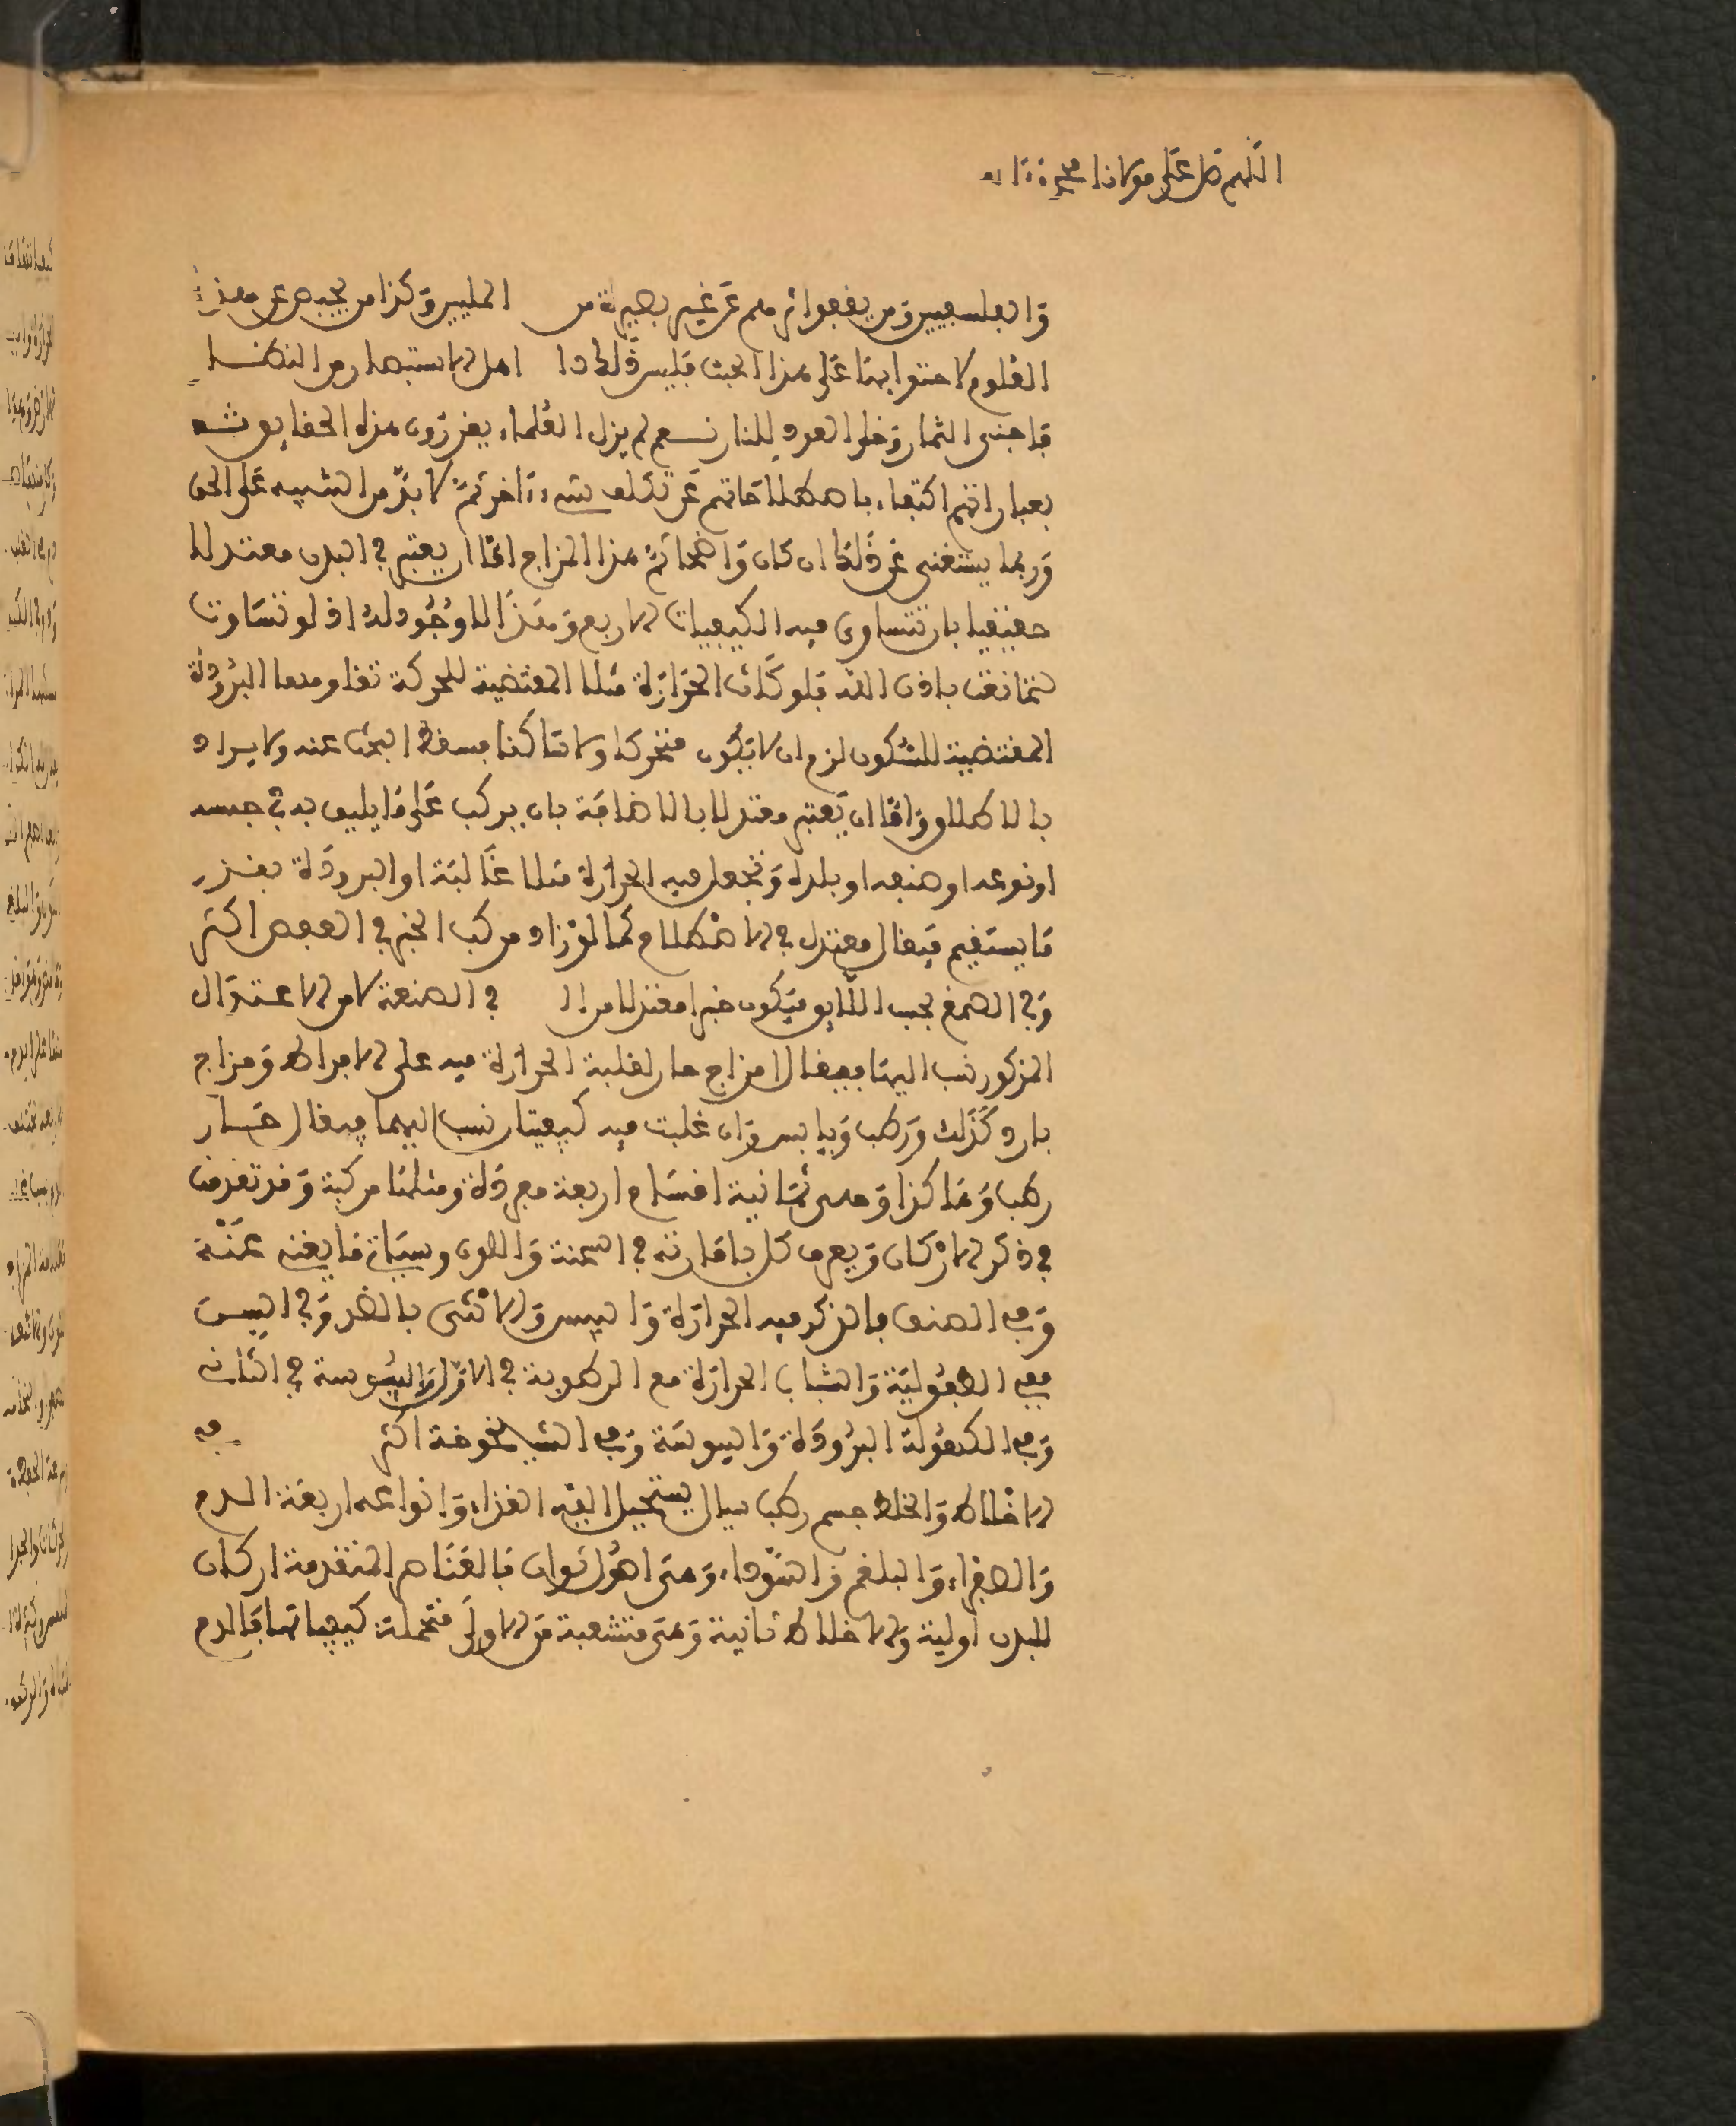 اللهم صل على مولانا محمد وآله
والفلسفيين ومن يقفوا اثرهم عن غير بصيرة من المليين وكذا من يجيبهم عن هذه
العلوم لاحتوائها على هذا الخبث فليس ذلك دا اهل الاستبصار من النظـار
فاجن الثمار وخل العود للنار نعم لم يزل العلماء يقررون هذه الحقائق ثم
بعباراتهم اكتفاء باصطلاحاتهم عن تكلف شيء اخر ثم لا بد من التنبيه على الحق
وربما يستغنى عن ذلك ان كان واضحا ثم هذا المزاج اما ان يعتبر في البدن معتدلا
حقيقيا بان تتساوى فيه الكيفيات الاربع وهذا لا وجود له اذ لو تساوت
لتمانعت باذن الله فلو كانت الحرارة مثلا المقتضية للحركة تقاومها البرودة
المقتضية للسكون لزم ان لا يكون متحركا ولا ساكنا فسقط البحث عنه ولا يراد
بالاطلاق واما ان يعتبر معتدلا بالاضافة بان يركب على ما يليق به في جنسه
او نوعه او صنفه او بلده وتجعل فيه الحرارة مثلا غالبة او البرودة بقدر
ما يستقيم فيقال معتدل في الاصطلاح كما لو زاد مركب الحبر في العفص اكثر
وفي الصمغ بحسب اللائق فيكون حبرا معتدلا من الـ في الصنعة لا من الاعتدال
المذكور نسب اليها فيقال مزاج حار لغلبة الحرارة فيه على الافراط ومزاج
بارد كذلك ورطب ويابس وان غلبت فيه كيفيتان نسب اليهما فيقال حـار
رطب وهاكذا وهي ثمانية اقسام اربعة مفردة ومثلها مركبة وقد تقدمت
في ذكر الاركان ويعرف كل باماراته في السحنة واللون وسيأتي ما يغني عنه
وفي الصنف فالذكر فيه الحرارة واليبس والانثى بالضد وفي السـن
ففي الطفولية والشباب الحرارة مع الرطوبة في الاول واليبوسة في الثاني
وفي الكهولة البرودة واليبوسة وفي الشيخوخة اكثر
الاخلاط والخلط جسم رطب سيال يستحيل اليه الغذاء وانواعه اربعة الدم
والصفراء والبلغم والسوداء وهي اصول ثوان فالعناصر المتقدمة اركان
للبدن اولية والاخلاط ثانية وهي متشعبة من الاولى متحملة كيفياتها فالدم